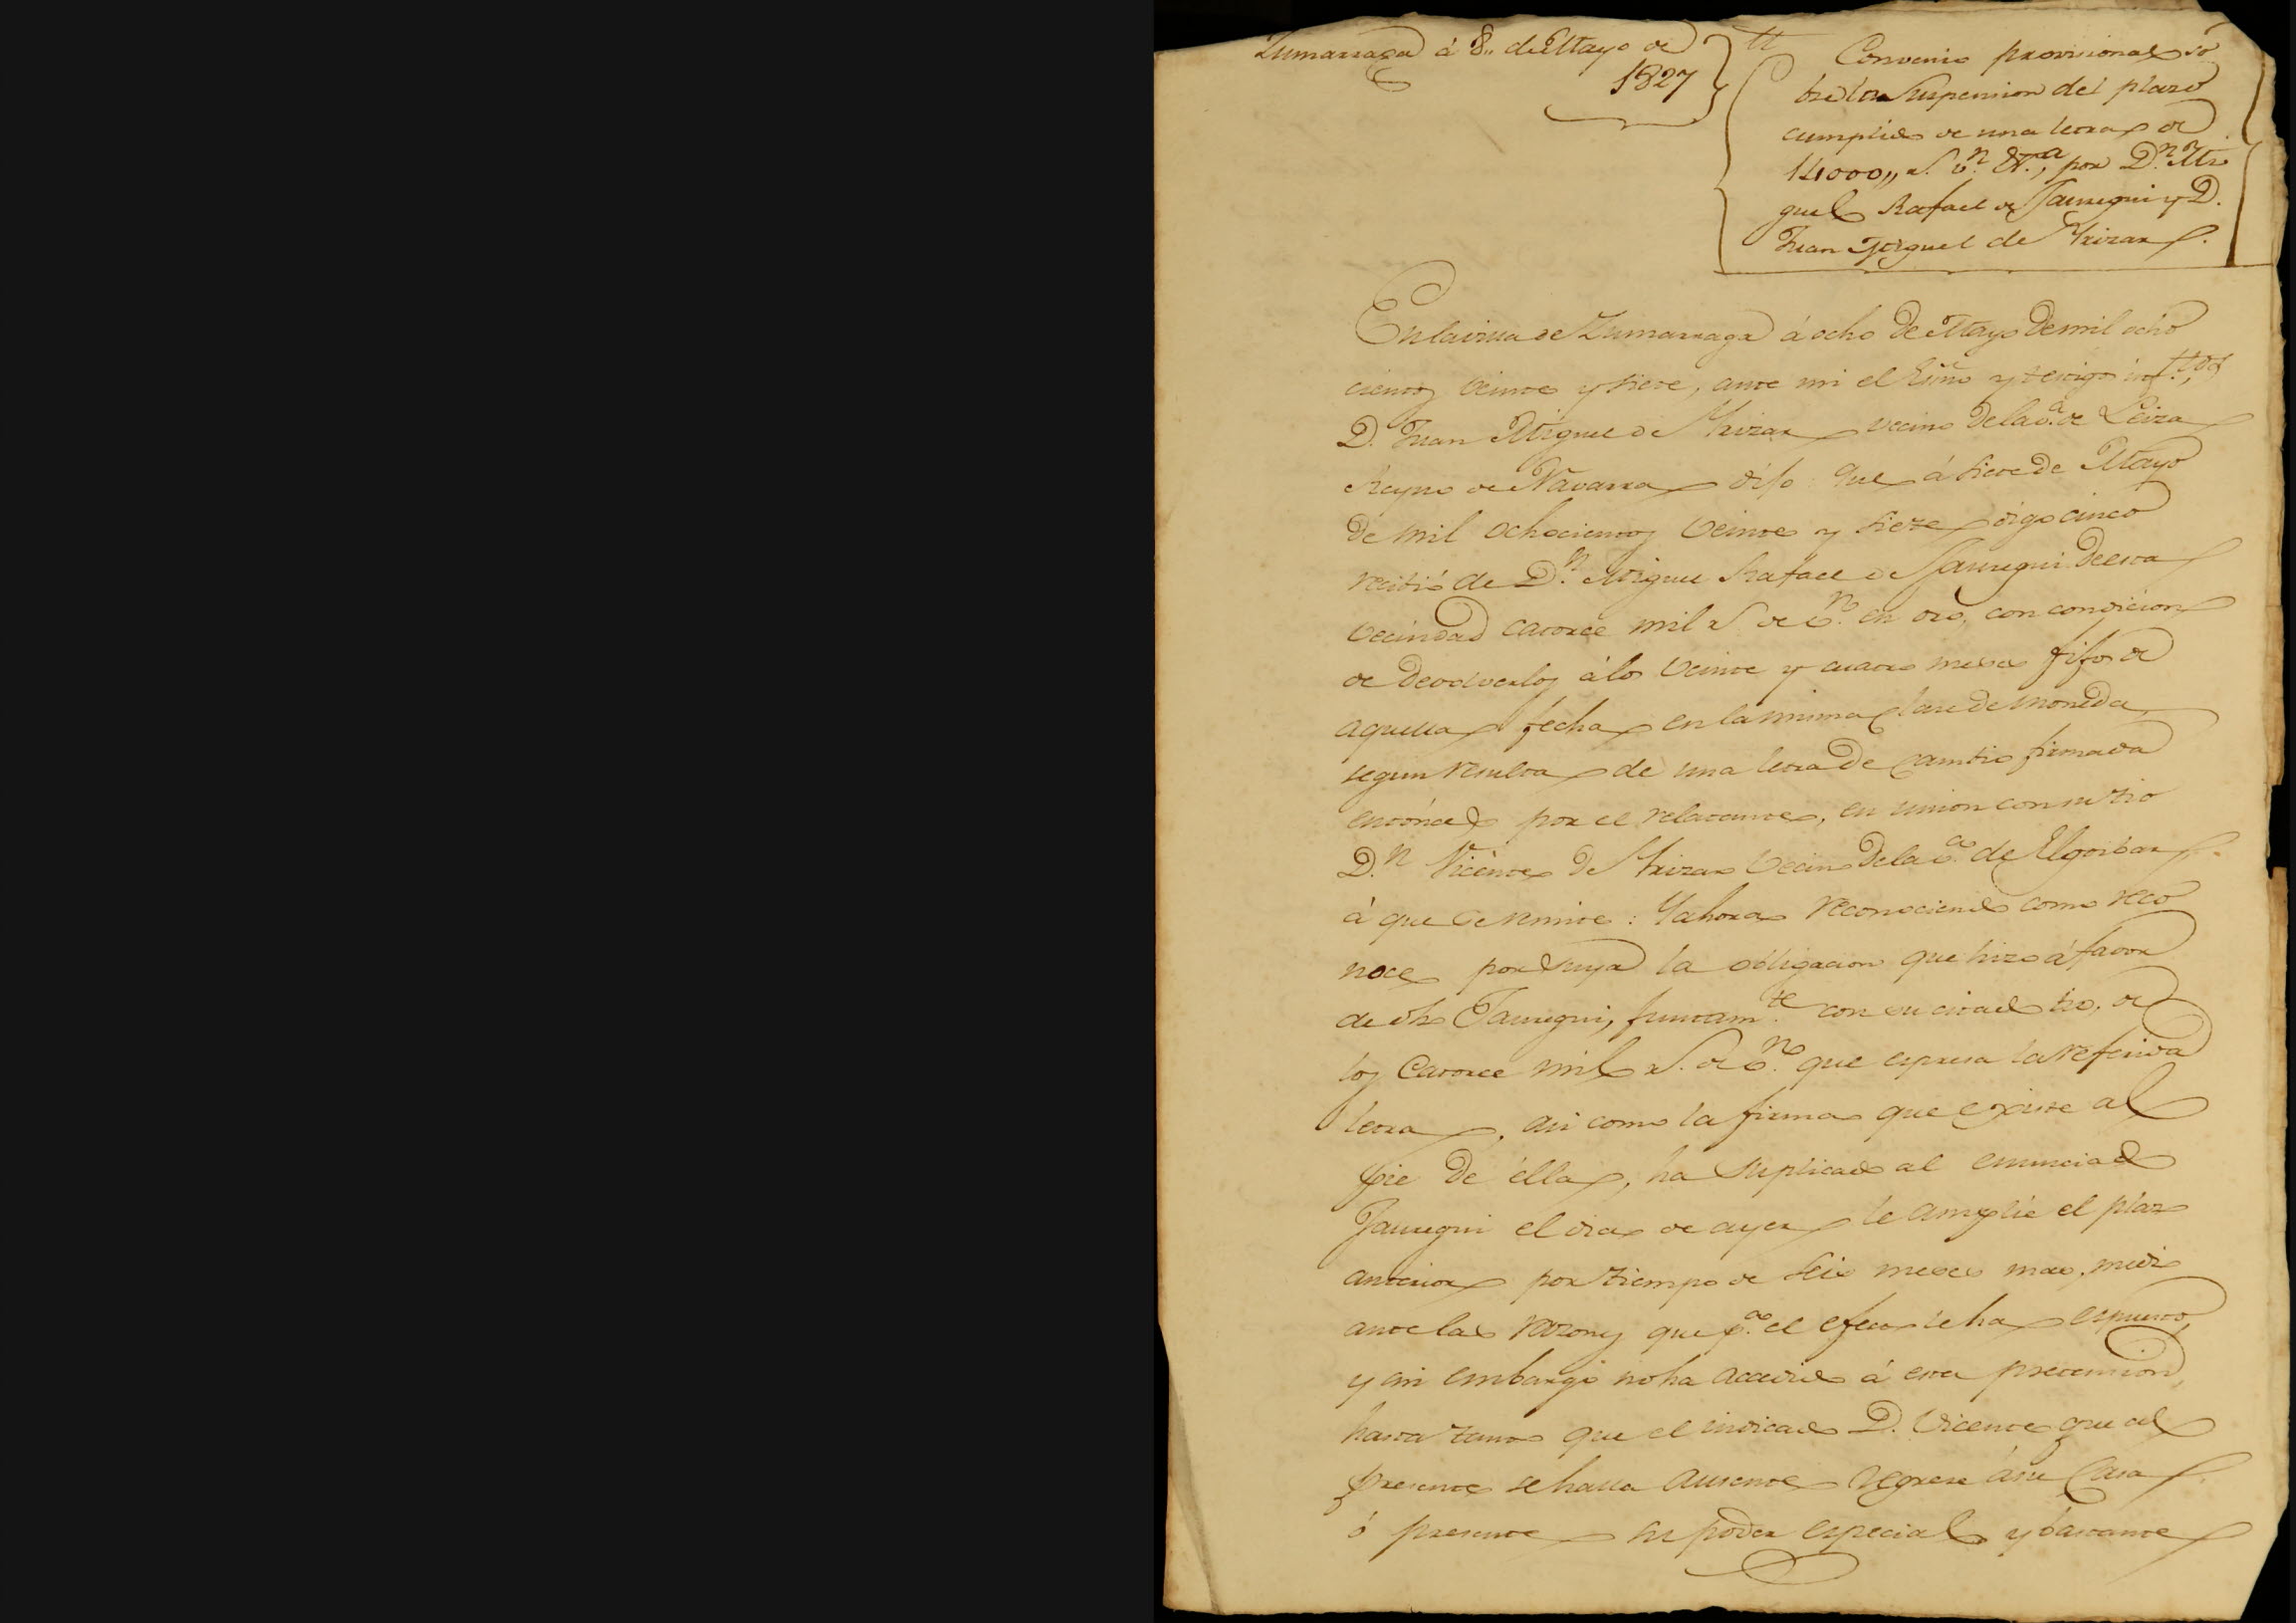 Zumarraga á 8,, de Mayo de
1827
Convenio provisional so
bre la Suspension del plazo
cumplido de una letra de
14000,, r.s v.n &.a, por D.n Mi
guel Rafael de Jauregui y D.
Juan Miguel de Yrizar.
En la villa de Zumarraga á ocho de Mayo de mil ocho
cientos veinte y siete, ante mi el Essno y testigos inf.tos,
D. Juan Miguel de Yrizar vecino de la v.a de Leiza
Reyno de Navarra dijo: Que á siete de Mayo
de mil ochocientos veinte y siete, digo cinco
recibió de D.n Miguel Rafael de Jauregui de esta
vecindad catorce mil r.s de v.n en oro, con condicion
de devolverlos á los veinte y cuatro meses fijos de
aquella fecha en la misma clase de moneda,
segun resulta de una letra de cambio firmada
entónces por el relatante, en union con su tio
D.n Vicente de Yrizar vecino de la v.a de Elgoibar,
á que se remite: Y ahora reconociendo como reco
noce por suya la obligacion que hizo á favor
de dho Jauregui, juntam.te con su citado tio, de
los catorce mil r.s de v.n que espresa la referida
letra, asi como la firma que existe al
pie de élla, ha suplicado al enunciado
Jauregui el dia de ayer le amplie el plazo
anterior por tiempo de seis meses mas, medi
ante las razones que p.a el efecto le ha espuesto,
y sin embargo no ha accedido á esta pretension,
hasta tanto que el indicado D. Vicente que al
presente se halla ausente regrese á su Casa,
ó presente su poder especial y bastante